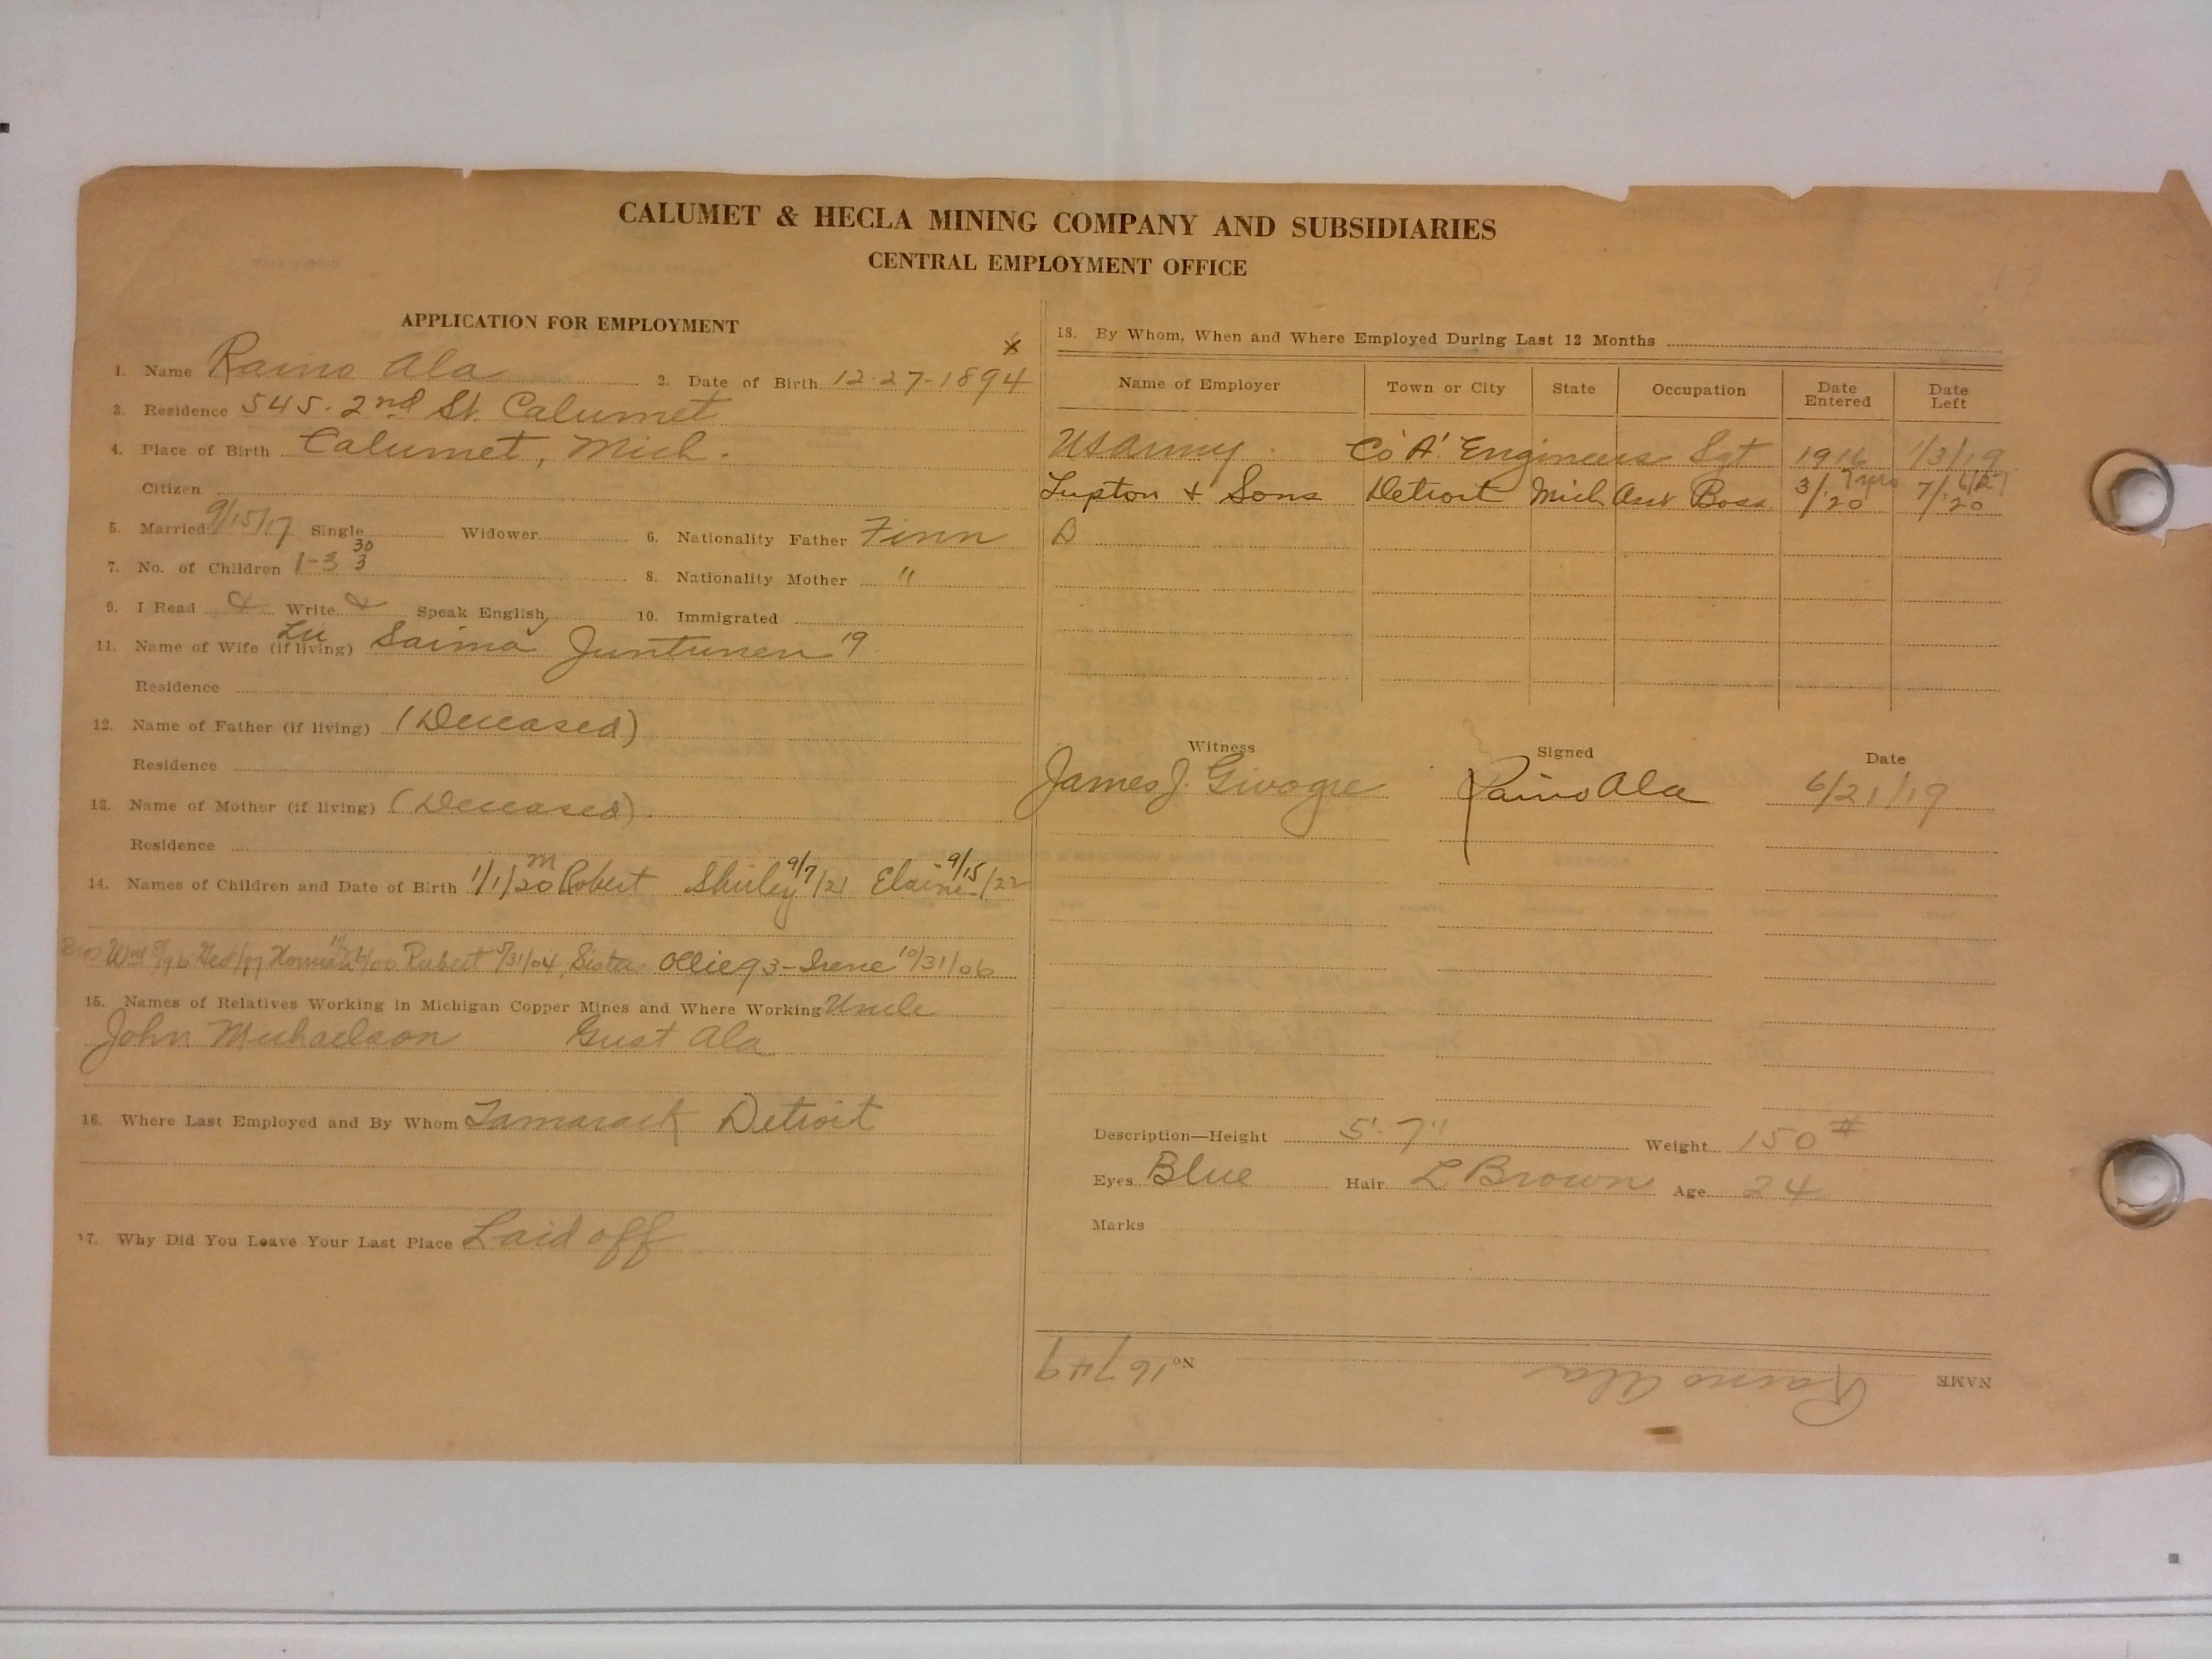 CALUMET & HECLA MINING COMPANY AND SUBSIDIARIES
CENTRAL EMPLOYMENT OFFICE
APPLICATION FOR EMPLOYMENT
x
1. Name Raino Ala 2. Date of Birth 12-27-1894
3. Residence 545. 2nd St. Calumet
4. Place of Birth Calumet, Mich.
Citizen
5. Married 9/15/17 Single Widower 6. Nationality Father Finn
7. No. of Children 1-3 30 3 8. Nationality Mother "
9. I Read & Write & Speak English 10. Immigrated
11. Name of Wife (if living) Saima Juntunen 19
Residence
12. Name of Father (if living) (Deceased)
Residence
13. Name of Mother (if living) (Deceased)
Residence
14. Names of Children and Date of Birth 1/1/20 m Robert Shirley 9/7/21 Elaine 9/15/22
Bros Wm Rubert 5/31/04, Sister Ollie 93 - Irene 10/31/06
15. Names of Relatives Working in Michigan Copper Mines and Where Working Uncle
John Michaelson Gust Ala
16. Where Last Employed and By Whom Tamarack Detroit
17. Why Did You Leave Your Last Place Laid off
18. By Whom, When and Where Employed During Last 12 Months
Name of Employer Town or City State Occupation Date Entered Date Left
US Army. Co 'A' Engineers Sgt 1916 1/3/19
Lupton & Sons Detroit Mich Boss 3/20 7/20
D
Witness Signed Date
James J. Raino Ala 6/21/19
Description—Height 5'-7" Weight 150 #
Eyes Blue Hair L Brown Age 24
Marks
NAME Raino Ala No. 16749